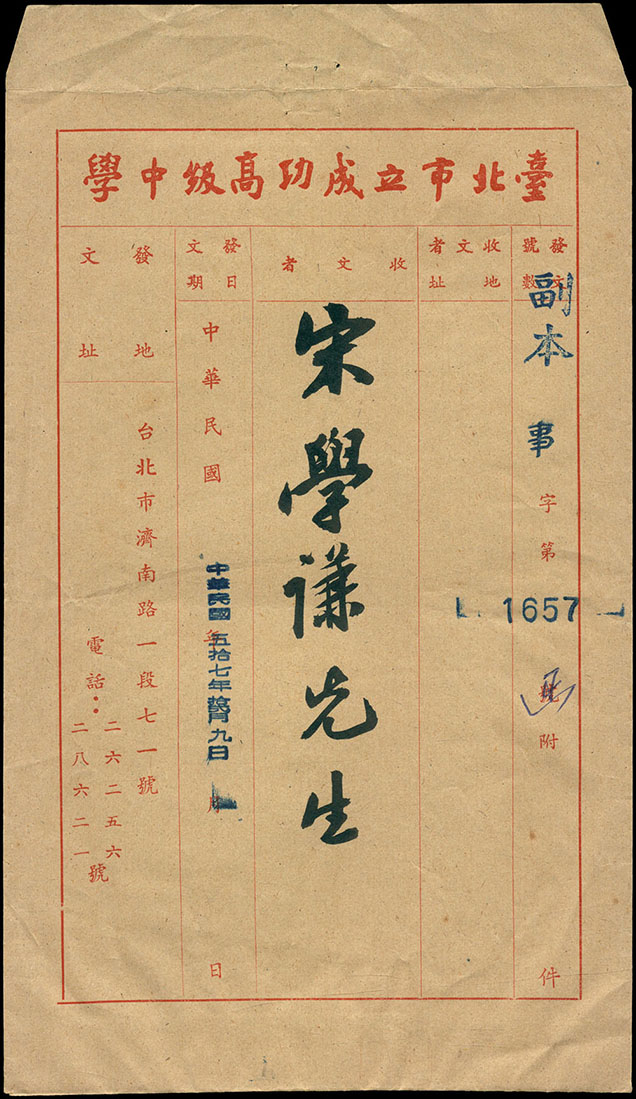 臺北市立成功高級中學
發文號數
副本
事字第1657號附件
收文者地址
收文者
宋學謙先生
發文日期
中華民國年月日
中華民國五拾七年月九日
發文地址
台北市濟南路一段七一號
電話：二六二五六
二八六二一號